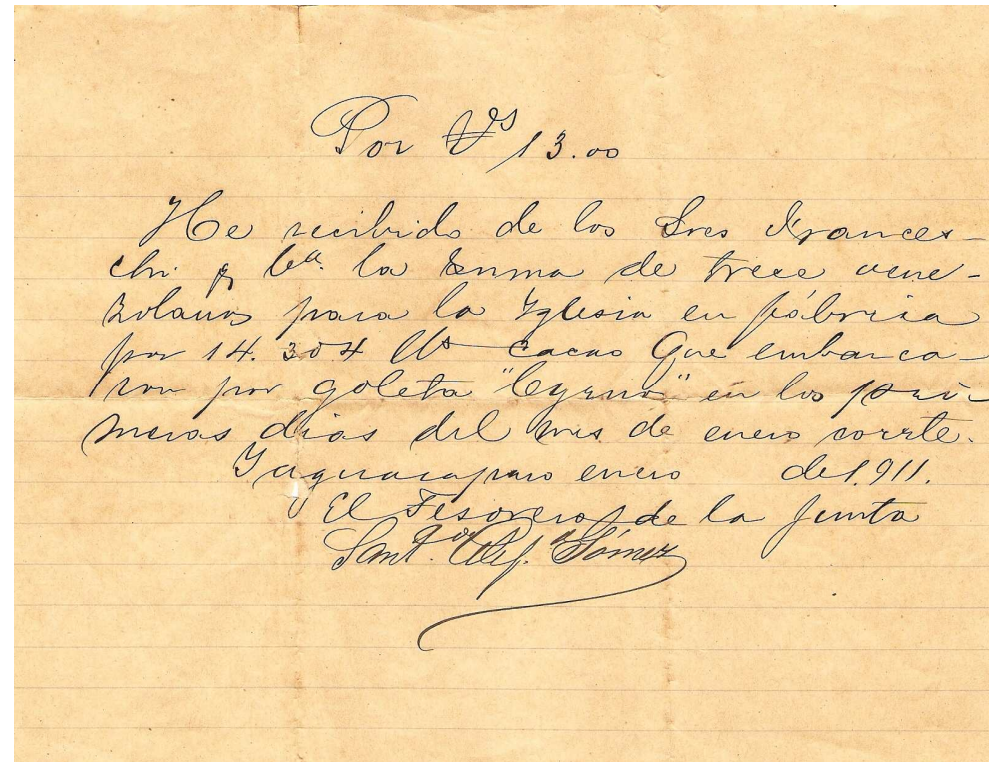 Por Vs 13.00
He recibido de los Sres Frances-
chi y Ca. la suma de trece vene-
zolanos para la Yglesia en fábrica
por 14.304 lls cacao que embarca-
ron por goleta "Cyrnos" en los pri-
meros dias del mes de enero corrte.
Yaguaraparo enero de 1.911.
El Tesorero de la Junta
Santgo Gómez